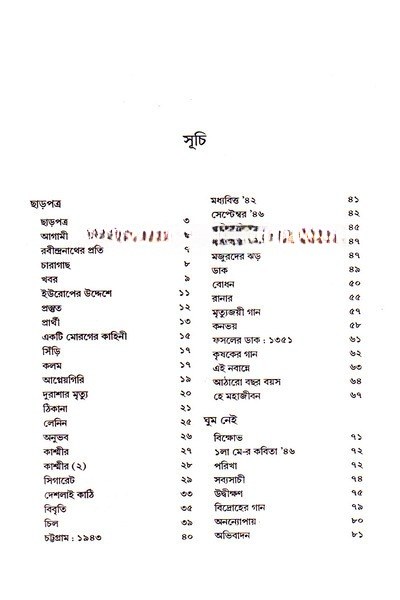 সূচি
ছাড়পত্র
ছাড়পত্র ৩
আগামী ৫
রবীন্দ্রনাথের প্রতি ৭
চারাগাছ ৮
খবর ৯
ইউরোপের উদ্দেশে ১১
প্রস্তুত ১২
প্রার্থী ১৩
একটি মোরগের কাহিনী ১৫
সিঁড়ি ১৭
কলম ১৭
আগ্নেয়গিরি ১৯
দুরাশার মৃত্যু ২০
ঠিকানা ২১
লেনিন ২৫
অনুভব ২৬
কাশ্মীর ২৭
কাশ্মীর (২) ২৮
সিগারেট ২৯
দেশলাই কাঠি ৩৩
বিবৃতি ৩৫
চিল ৩৯
চট্টগ্রাম : ১৯৪৩ ৪০
মধ্যবিত্ত '৪২ ৪১
সেপ্টেম্বর '৪৬ ৪২
৪৫
৪৭
মজুরদের ঝড় ৪৭
ডাক ৪৯
বোধন ৫০
রানার ৫৫
মৃত্যুজয়ী গান ৫৭
কনভয় ৫৮
ফসলের ডাক : ১৩৫১ ৬১
কৃষকের গান ৬২
এই নবান্নে ৬৩
আঠারো বছর বয়স ৬৪
হে মহাজীবন ৬৭
ঘুম নেই
বিক্ষোভ ৭১
১লা মে-র কবিতা '৪৬ ৭২
পরিখা ৭২
সব্যসাচী ৭৪
উদ্বীক্ষণ ৭৫
বিদ্রোহের গান ৭৯
অনন্যোপায় ৮০
অভিবাদন ৮১